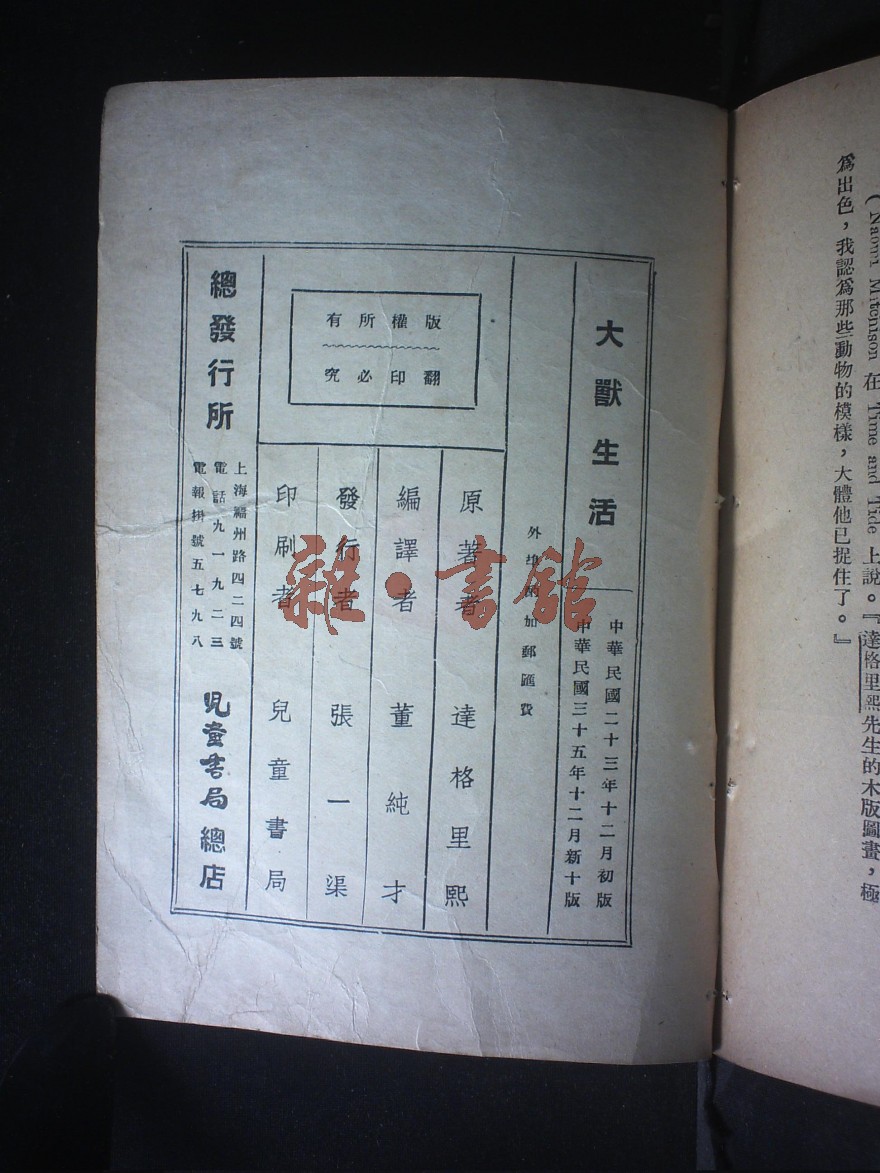 (Naomi Mitchison 在 Time and Tide 上說。『達格里熙先生的木版圖畫，極
爲出色，我認爲那些動物的模樣，大體他已捉住了。』
大獸生活
中華民國二十三年十二月初版
中華民國三十五年十二月新十版
外埠酌加郵匯費
版權所有
翻印必究
原著者 達格里熙
編譯者 董純才
發行者 張一渠
印刷者 兒童書局
總發行所
上海福州路四二四號
電話九一九二三
電報掛號五七九八
兒童書局總店
雜·書館